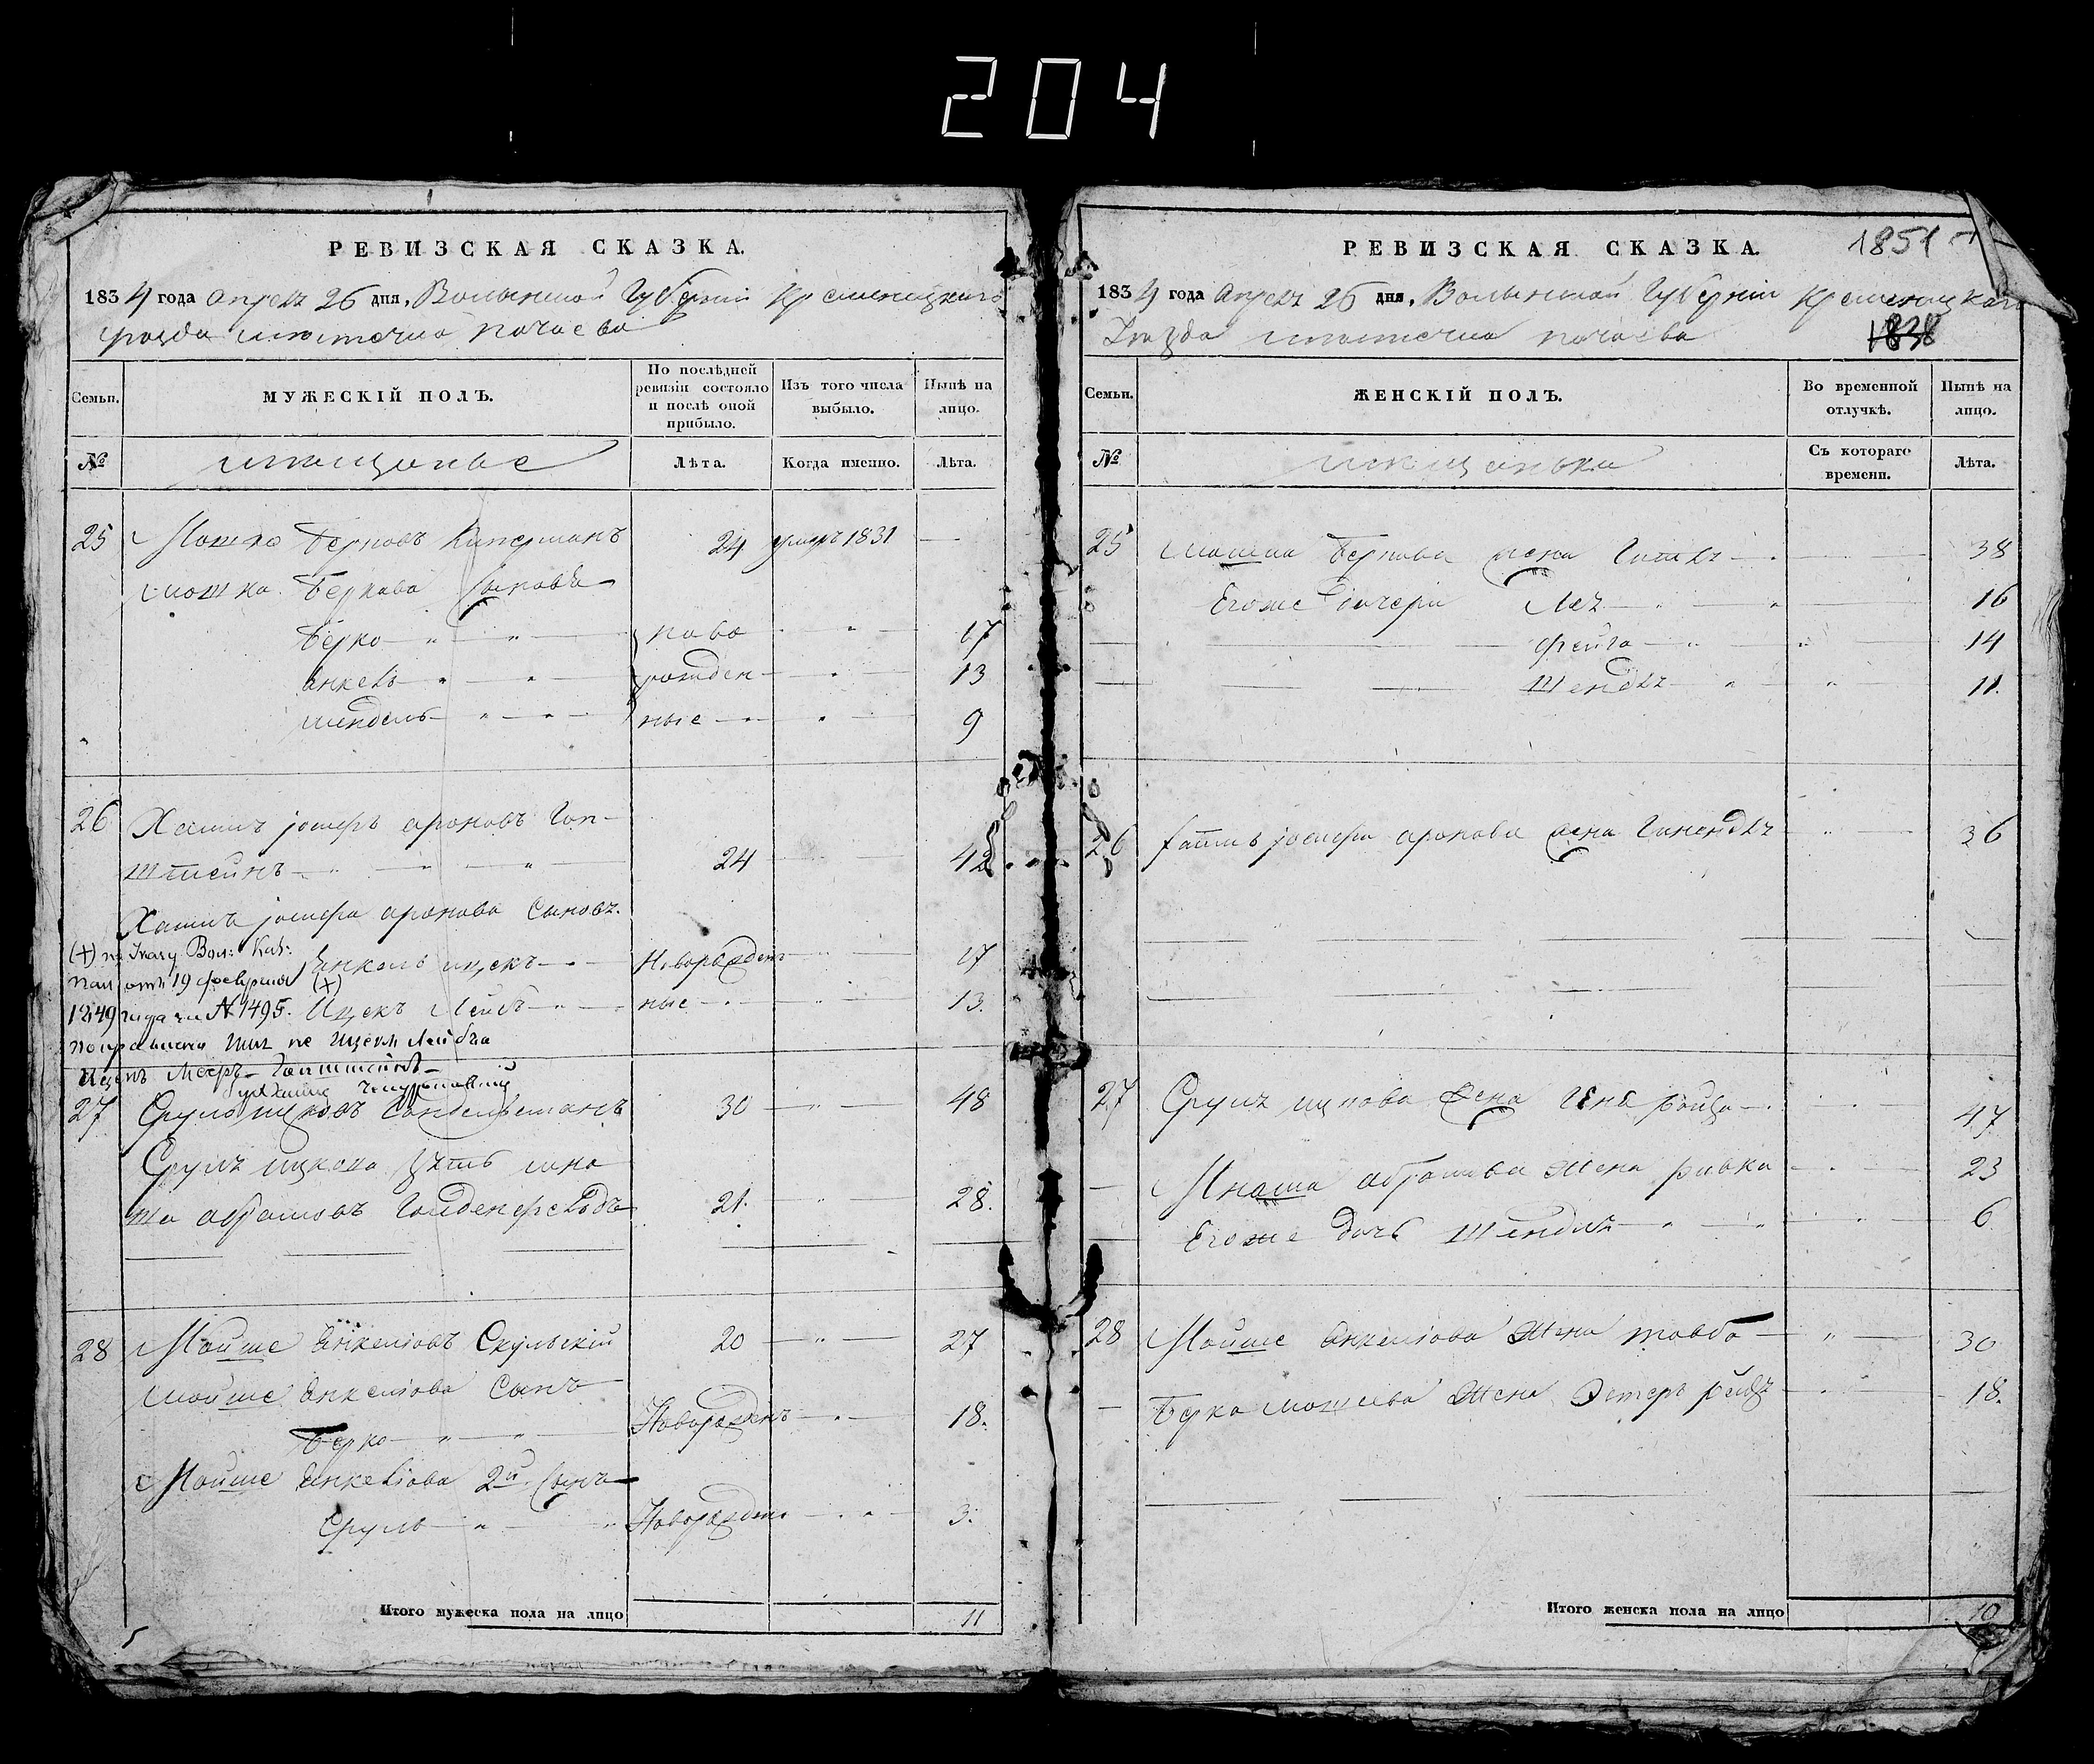 204
РЕВИЗСКАЯ СКАЗКА.
1834 года апреля 26 дня, Волынской Губерніи Кременецкаго
уезда местечка почаева
Семьи.
МУЖЕСКІЙ ПОЛЪ.
По послѣдней ревизіи состояло и послѣ оной прибыло.
Изъ того числа выбыло.
Нынѣ на лицо.
№
мещанъе
Лѣта.
Когда именно.
Лѣта.
25 Мошко Берковъ Киперманъ 24 умеръ 1831
мошка Беркова сыновья
Берко ново 17
анкель рожден 13
мендель ные 9
26 Хаимъ іосифъ ароновъ Гоп-
штейнъ 24 42
Хаима іосифа аронова сыновя
(+) по Указу Вол: Каз:
Янкель ицекъ Новорожден 17
пал отъ 19 февраля (+)
1849 года за № 1495. Ицекъ Лейбъ ные 13
Ицекъ Меэръ Гопштейнъ
27 Сруль ицковъ 30 48
Сруля ицкова зять мно
ша абрамовъ Голденфельдъ 21 28.
28 Мойше Янкеліовъ Скульскій 20 27
мойше Янкеліова сынъ
Берко Новорожденъ 18.
Мойше Янкеліова 2й сынъ
Сруль Новорожден 3.
Итого мужеска пола на лицо 11
5
РЕВИЗСКАЯ СКАЗКА.
1851
1834 года апреля 26 дня, Волынской Губерніи Кременецкаго
Уезда местечка почаева
1838
Семьи.
ЖЕНСКІЙ ПОЛЪ.
Во временной отлучкѣ.
Нынѣ на лицо.
№
мещанъки
Съ котораго времени.
Лѣта.
25 мошка Беркова жена Гитля 38
Егоже дочери Лея 16
фейга 14
Шендля 11.
26 Хаима іосифа аронова жена Гинендля 36
27 Сруля ицкова жена Геня ройза 47
Мноша абрамова жена ривка 23
Егоже дочь Шендля 6
28 Мойше Янкеліова жена товба 30
Берка мошкова жена Эстеръ рейзя 18.
Итого женска пола на лицо 10